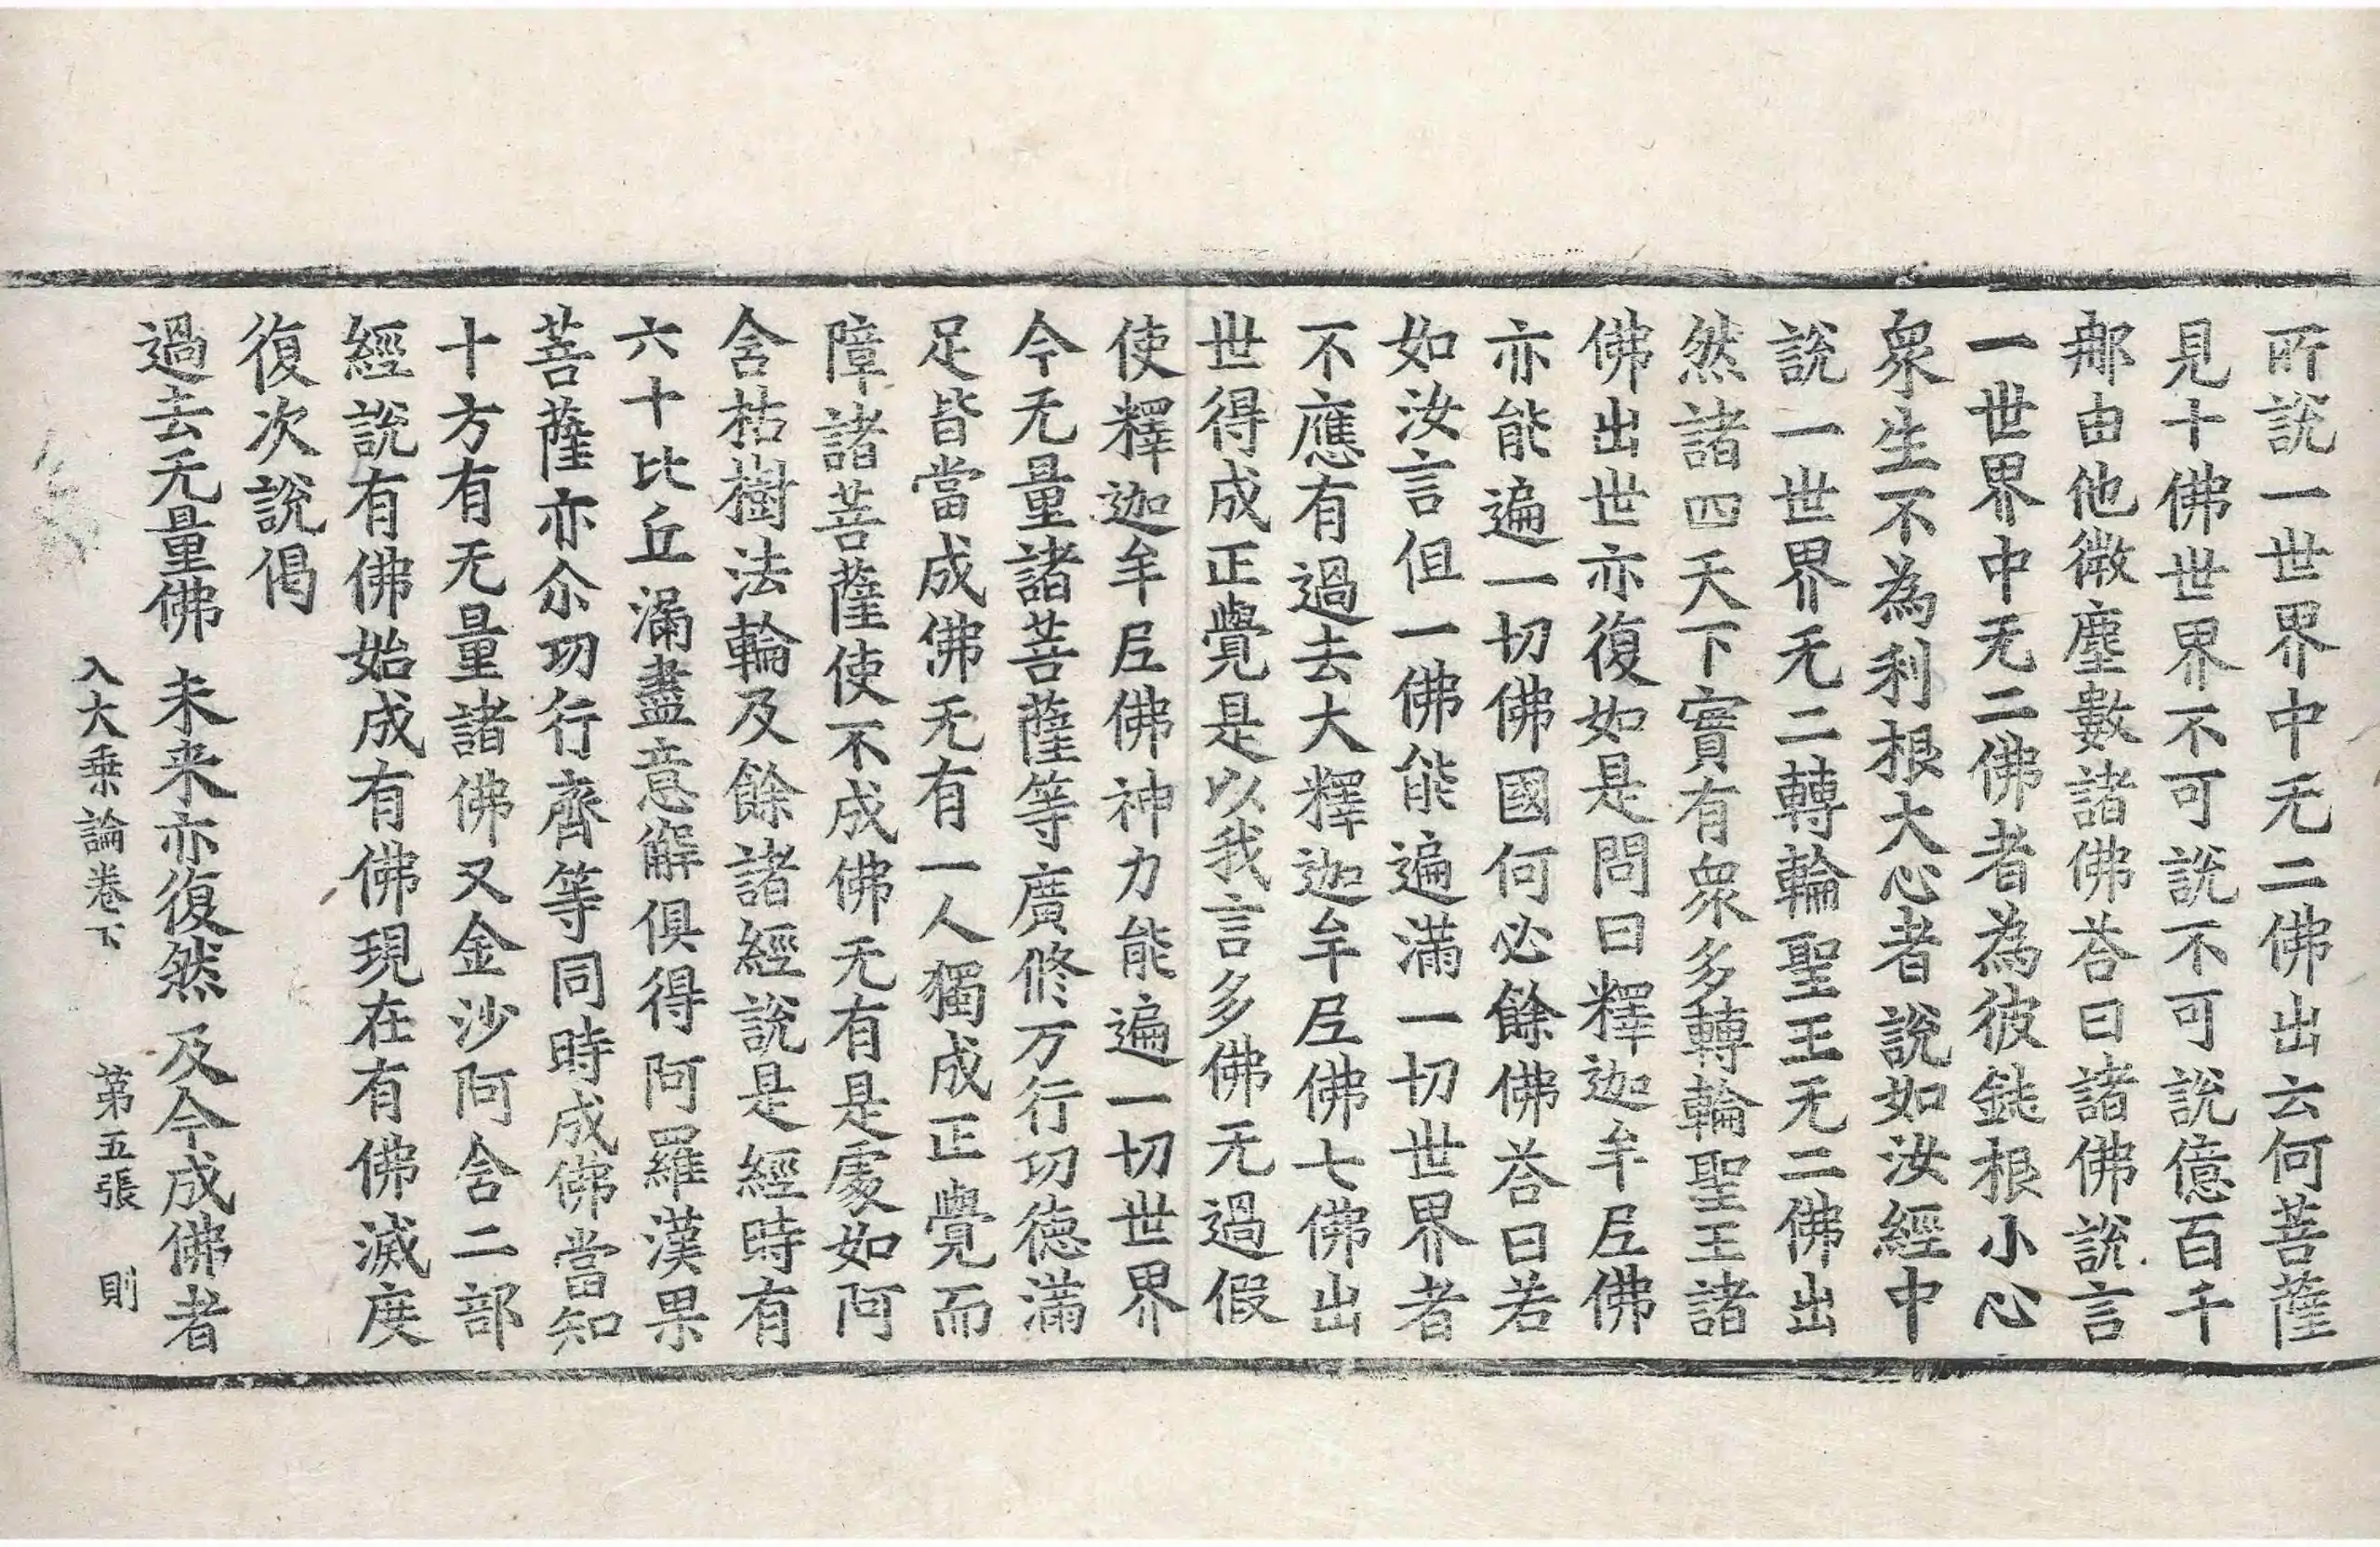 所說一世界中无二佛出云何菩薩
見十佛世界不可說不可說億百千
那由他微塵數諸佛荅曰諸佛說言
一世界中无二佛者為彼鈍根小心
衆生不為利根大心者說如汝經中
說一世界无二轉輪聖王无二佛出
然諸四天下實有衆多轉輪聖王諸
佛出世亦復如是問曰釋迦牟尼佛
亦能遍一切佛國何必餘佛荅曰若
如汝言但一佛能遍滿一切世界者
不應有過去大釋迦牟尼佛七佛出
世得成正覺是以我言多佛无過假
使釋迦牟尼佛神力能遍一切世界
今无量諸菩薩等廣修万行功德滿
足皆當成佛无有一人獨成正覺而
障諸菩薩使不成佛无有是處如阿
含枯樹法輪及餘諸經說是經時有
六十比丘漏盡意解俱得阿羅漢果
菩薩亦尒功行齊等同時成佛當知
十方有无量諸佛又金沙阿含二部
經說有佛始成有佛現在有佛滅度
復次說偈
過去无量佛 未来亦復然 及今成佛者
入大乗論卷下 第五張 則